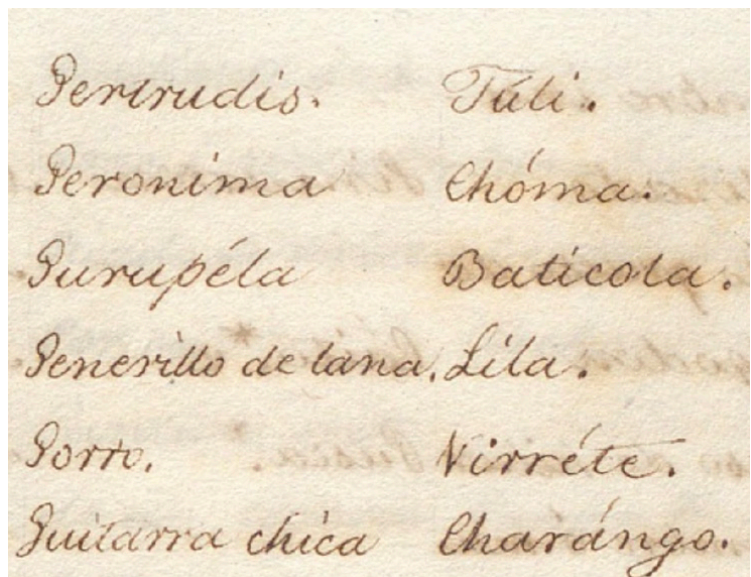 Gertrudis. Túli.
Geronima Chóma.
Gurupéla Baticola.
Generillo de lana. Lila.
Gorro. Virréte.
Guitarra chica Charángo.